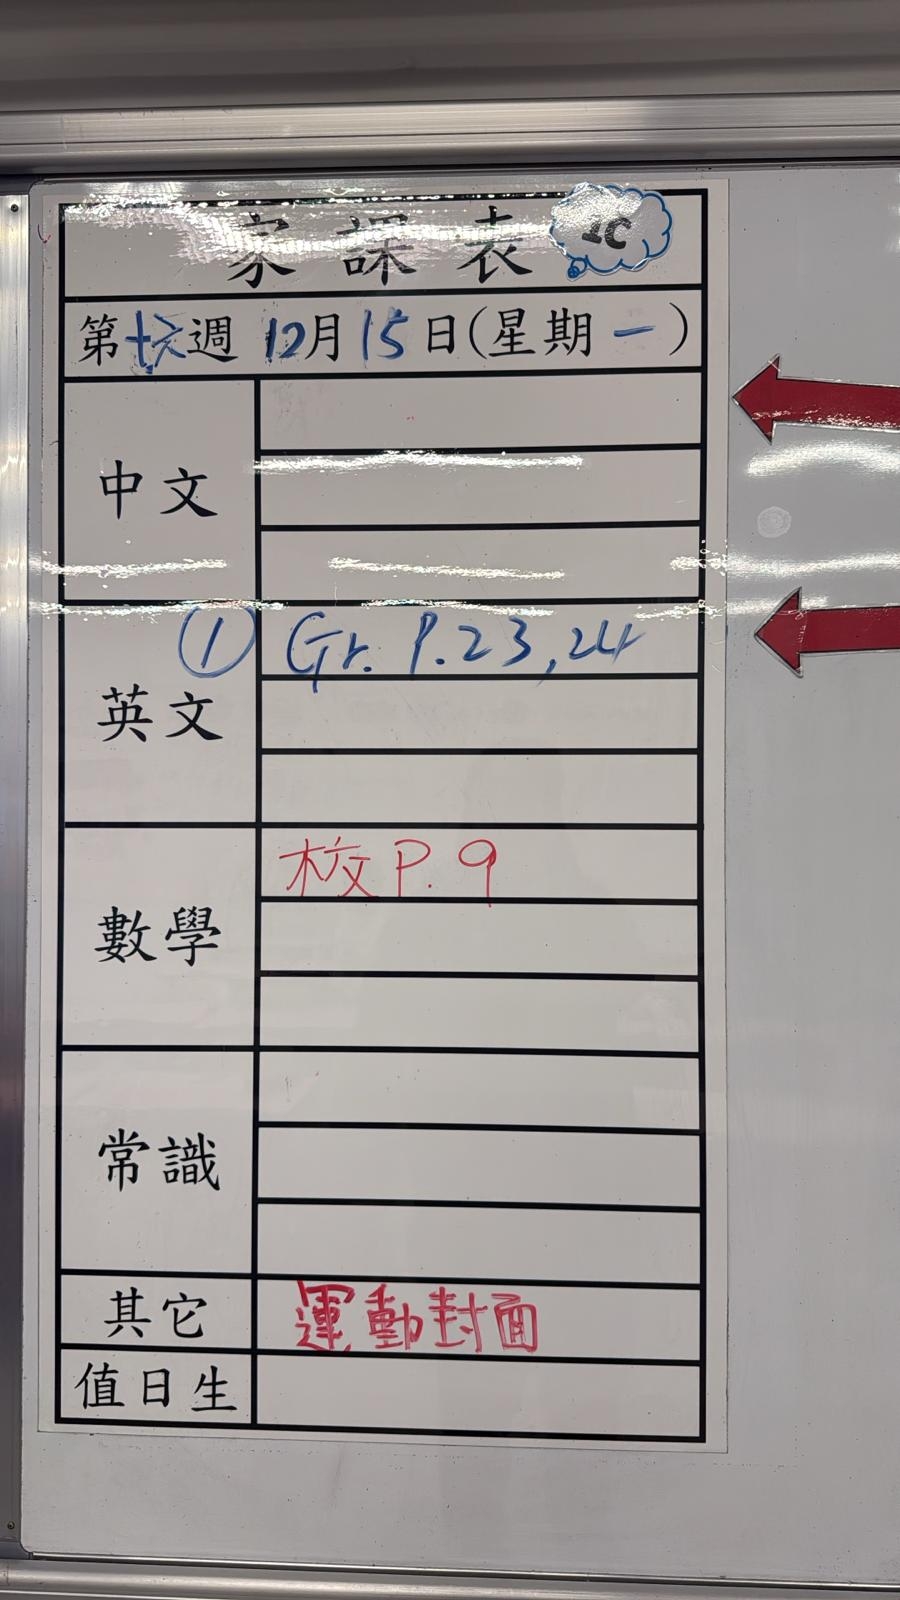 家課表 1C
第十六週 12月15日(星期一)
中文
英文 ① Gr. P.23,24
數學 校 P.9
常識
其它 運動封面
值日生